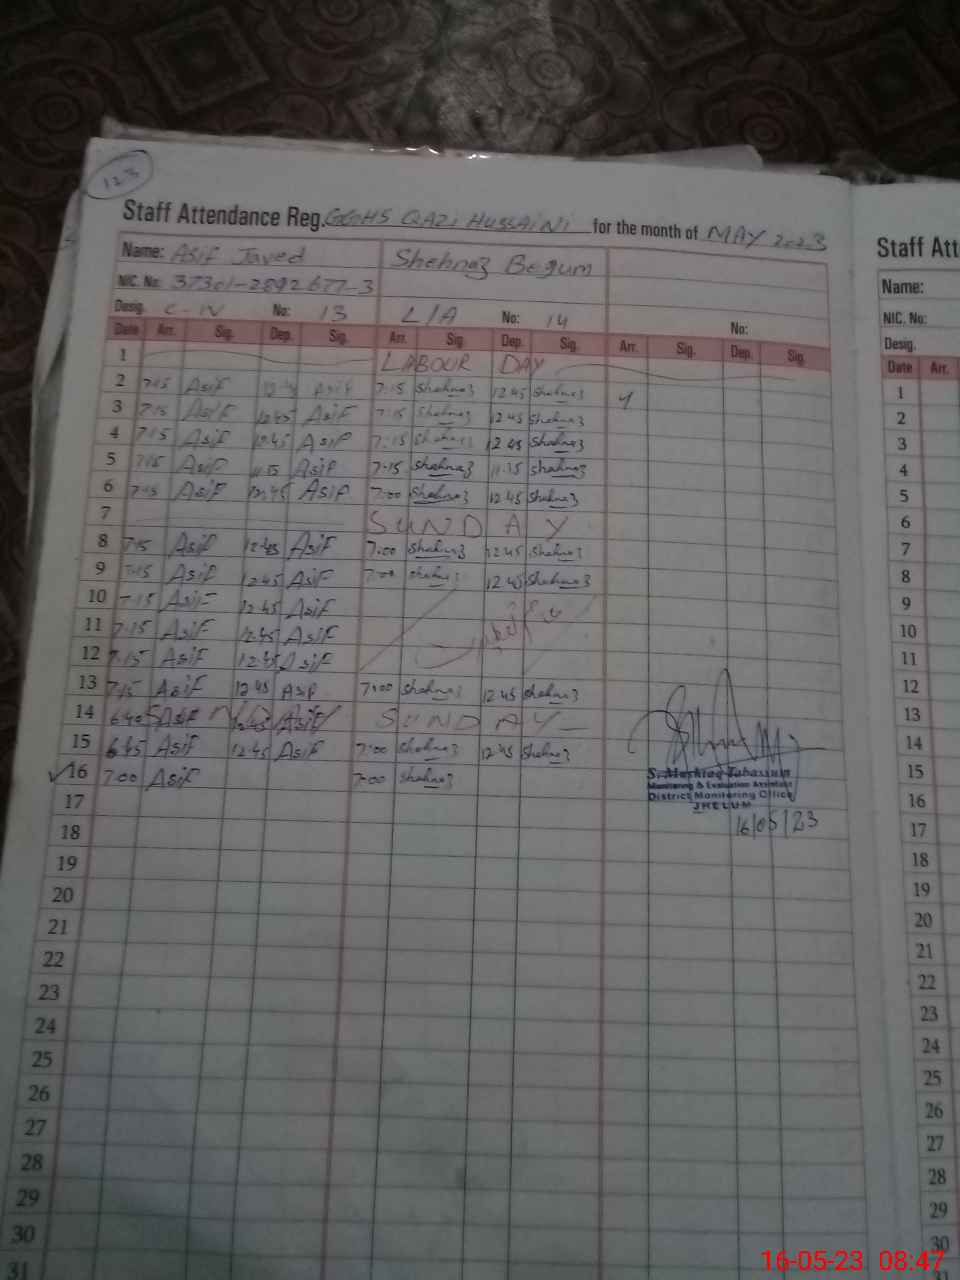 123
Staff Attendance Reg. GGHS QAZi HUSSAiNi for the month of MAY 2023
Staff Att
Name: Asif Javed Shehnaz Begum
Name:
NIC. No: 37301-2892677-3
NIC. No:
Desig. C-IV No: 13 L/A No: 14 No:
Desig.
Date Arr. Sig. Dep. Sig. Arr. Sig. Dep. Sig. Arr. Sig. Dep. Sig.
Date Arr.
1 LABOUR DAY
2 7:15 Asif Asif 7:15 Shehnaz 12:45 Shehnaz
3 7:15 Asif 12:45 Asif 7:15 Shehnaz 12:45 Shehnaz
4 7:15 Asif 12:45 Asif 7:15 Shehnaz 12:45 Shehnaz
5 7:15 Asif Asif 7:15 Shehnaz Shehnaz
6 7:15 Asif 12:45 Asif 7:00 Shehnaz 12:45 Shehnaz
7 SUNDAY
8 7:15 Asif 12:45 Asif 7:00 Shehnaz 12:45 Shehnaz
9 7:15 Asif 12:45 Asif 7:00 Shehnaz 12:45 Shehnaz
10 7:15 Asif 12:45 Asif
11 7:15 Asif 12:45 Asif
12 7:15 Asif 12:45 Asif
13 7:15 Asif 12:45 Asif 7:00 Shehnaz 12:45 Shehnaz
14 Asif 12:45 Asif SUNDAY
15 6:45 Asif 12:45 Asif 7:00 Shehnaz 12:45 Shehnaz
16 7:00 Asif 7:00 Shehnaz
S. Mushtaq Tabassum
Monitoring & Evaluation Assistant
District Monitoring Office
JHELUM
16/05/23
17
18
19
20
21
22
23
24
25
26
27
28
29
30
31
1
2
3
4
5
6
7
8
9
10
11
12
13
14
15
16
17
18
19
20
21
22
23
24
25
26
27
28
29
30
31
16-05-23 08:47